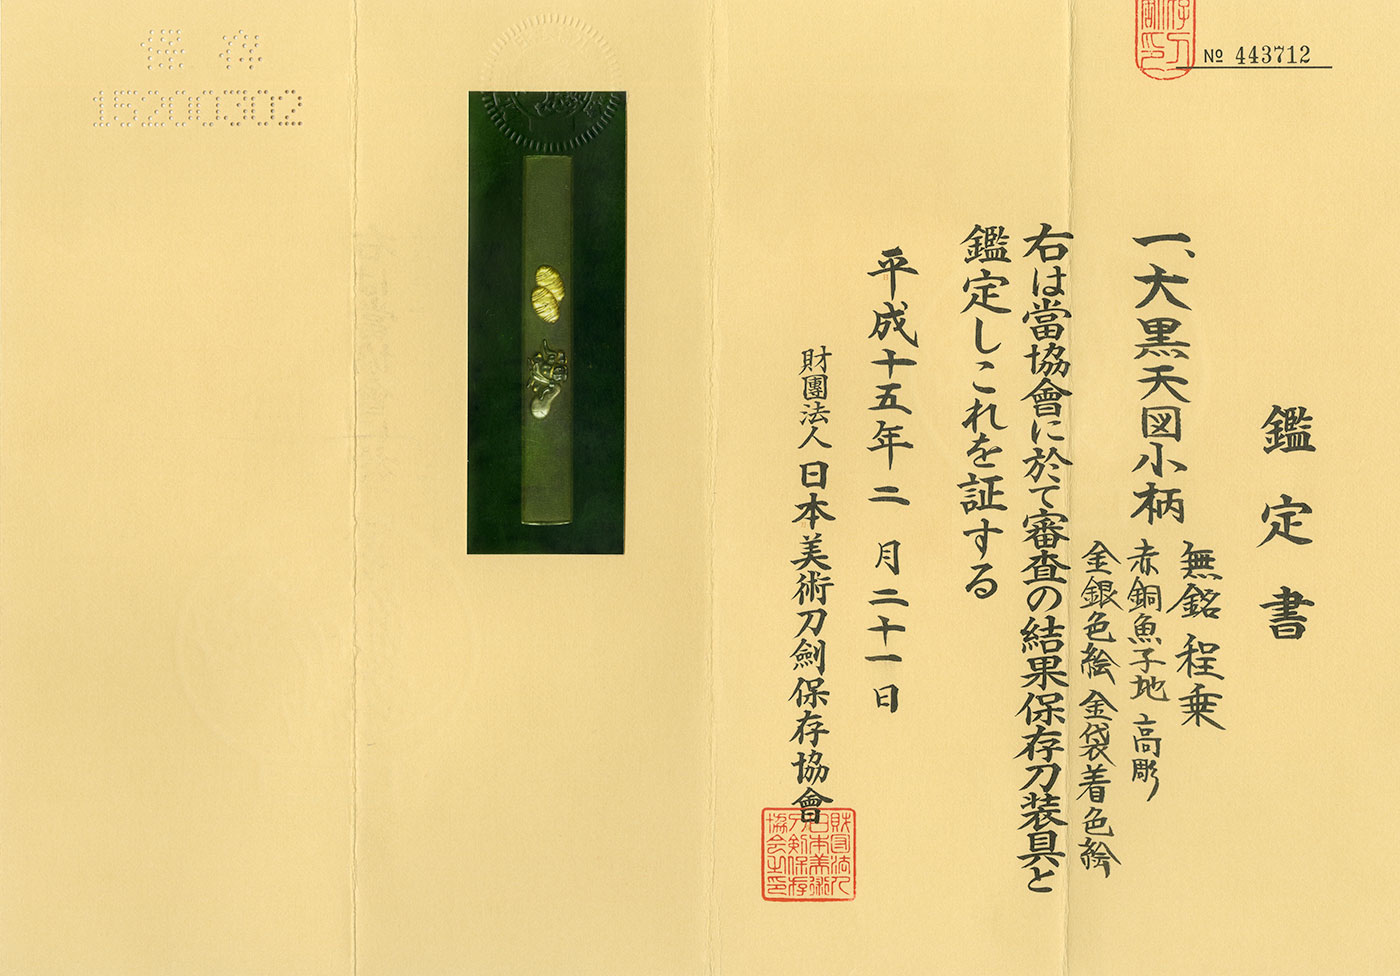 No 443712
鑑定書
一、大黒天図小柄
無銘 程乗
赤銅魚子地 高彫
金銀色絵 金袋着色絵
右は當協會に於て審査の結果保存刀装具と
鑑定しこれを証する
平成十五年二月二十一日
財團法人 日本美術刀劍保存協會
財団法人
日本美術
刀剣保存
協会之印
保存
15200302